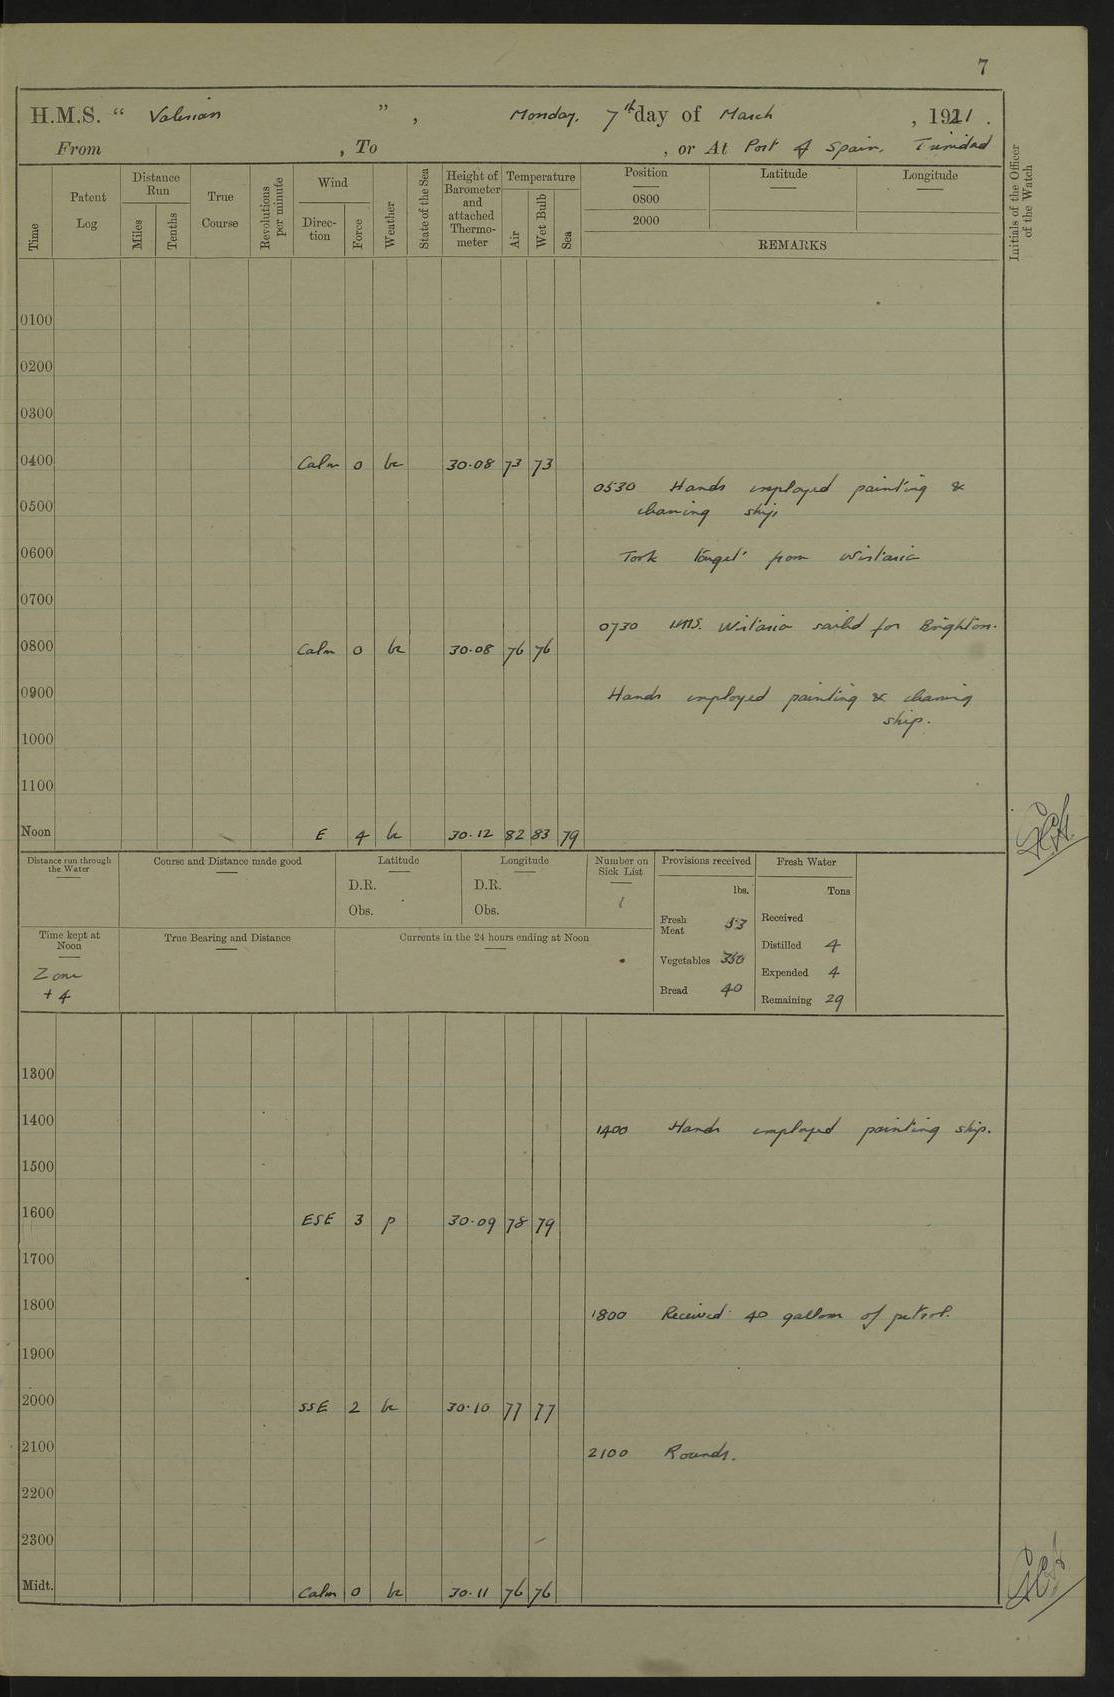 7
H.M.S. “ Valerian ” , Monday. 7th day of March , 1921 .
From , To , or At Port of Spain. Trinidad
Time
Patent Log
Distance Run
Miles
Tenths
True Course
Revolutions per minute
Wind
Direc-tion
Force
Weather
State of the Sea
Height of Barometer and attached Thermo-meter
Temperature
Air
Wet Bulb
Sea
Position
0800
2000
Latitude
Longitude
REMARKS
Initials of the Officer of the Watch
0100
0200
0300
0400 Calm 0 bc 30.08 73 73
0530 Hands employed painting &
cleaning ship
0500
0600 Took target from Wistaria
0700
0730 HMS. Wistaria sailed for Brighton.
0800 Calm 0 bc 30.08 76 76
0900 Hands employed painting & cleaning
ship.
1000
1100
Noon E 4 bc 30.12 82 83 79
Distance run through the Water
Course and Distance made good
Latitude
D.R.
Obs.
Longitude
D.R.
Obs.
Number on Sick List
1
Provisions received
lbs.
Fresh Meat 53
Vegetables 350
Bread 40
Fresh Water
Tons
Received
Distilled 4
Expended 4
Remaining 29
Time kept at Noon
Zone
+ 4
True Bearing and Distance
Currents in the 24 hours ending at Noon
1300
1400 1400 Hands employed painting ship.
1500
1600 ESE 3 p 30.09 78 79
1700
1800 1800 Received 40 gallons of petrol.
1900
2000 SSE 2 bc 30.10 77 77
2100 2100 Rounds.
2200
2300
Midt. Calm 0 bc 30.11 76 76